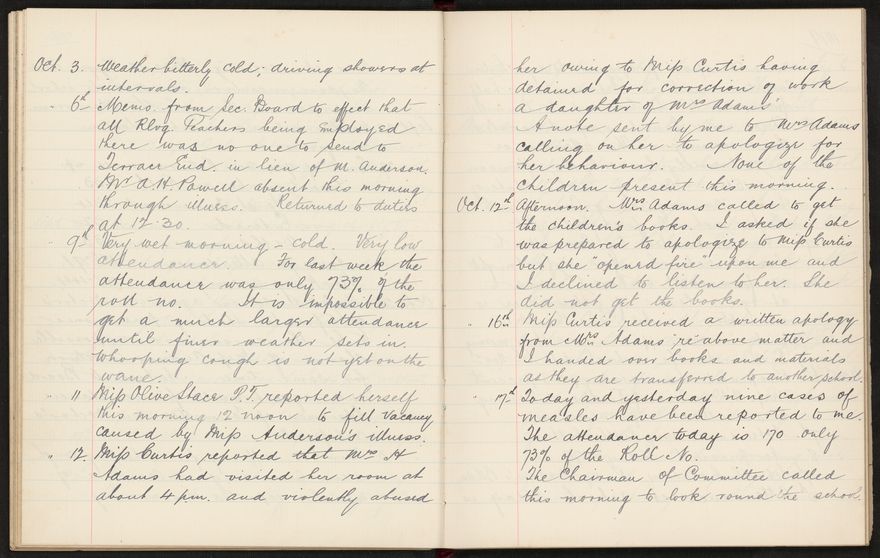 Oct. 3. Weather bitterly cold; driving showers at
intervals.
" 6th Memo. from Sec. Board to effect that
all Rlvg. Teachers being employed
there was no one to send to
Terrace End. in lieu of M. Anderson.
Mr A H Powell absent this morning
through illness. Returned to duties
at 12.30.
" 9th Very wet morning - cold. Very low
attendance. For last week the
attendance was only 73% of the
roll no. It is impossible to
get a much larger attendance
until finer weather sets in.
Whooping cough is not yet on the
wane.
" 11 Miss Olive Stace P.T. reported herself
this morning 12 noon to fill vacancy
caused by Miss Anderson's illness.
" 12. Miss Curtis reported that Mrs H
Adams had visited her room at
about 4 pm. and violently abused
her owing to Miss Curtis having
detained for correction of work
a daughter of Mrs Adams'
A note sent by me to Mrs Adams
calling on her to apologize for
her behaviour. None of the
children present this morning.
Oct. 12th Afternoon. Mrs Adams called to get
the children's books. I asked if she
was prepared to apologize to Miss Curtis
but she "opened fire" upon me and
I declined to listen to her. She
did not get the books.
" 16th Miss Curtis received a written apology
from Mrs Adams re above matter and
I handed over books and materials
as they are transferred to another school.
" 17th Today and yesterday nine cases of
measles have been reported to me.
The attendance today is 170 only
73% of the Roll No.
The Chairman of Committee called
this morning to look round the school.